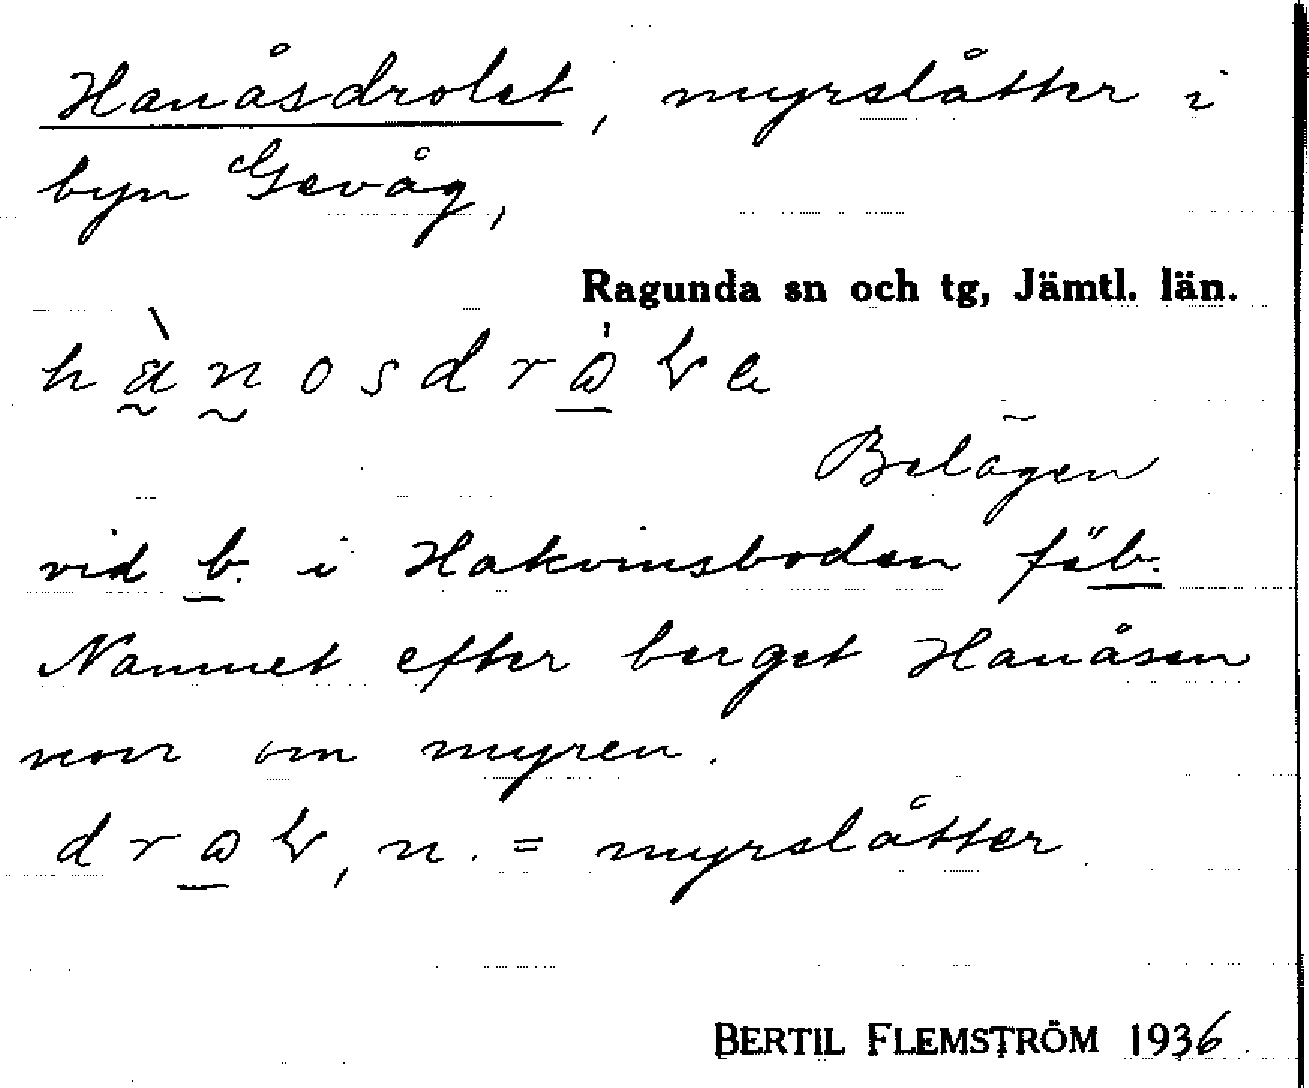 Hanåsdrolet, myrslåtter i
byn Gevåg,
Ragunda sn och tg, Jämtl. län.
Belägen
vid b. i Hakvinsboden fäb.
Namnet efter berget Hanåsen
norr om myren.
n. = myrslåtter
BERTIL FLEMSTRÖM 1936